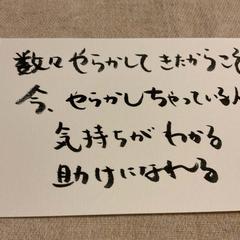 数々やらかしてきたからこそ
今、やらかしちゃっている人
気持ちがわかる
助けになれる